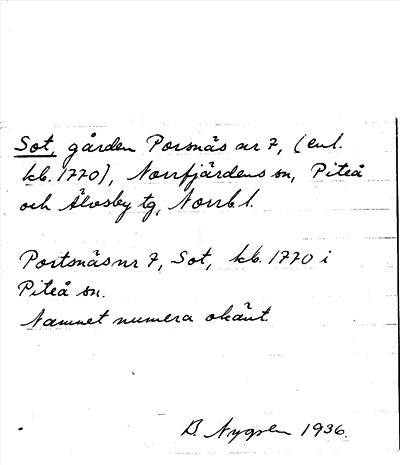 Sot, gården Porsnäs nr 7, (enl.
kb. 1770), Norrfjärdens sn, Piteå
och Älvsby tg, Norrb l.
Portsnäs nr 7, Sot, kb. 1770 i
Piteå sn.
Namnet numera okänt.
B. Nygren 1936.